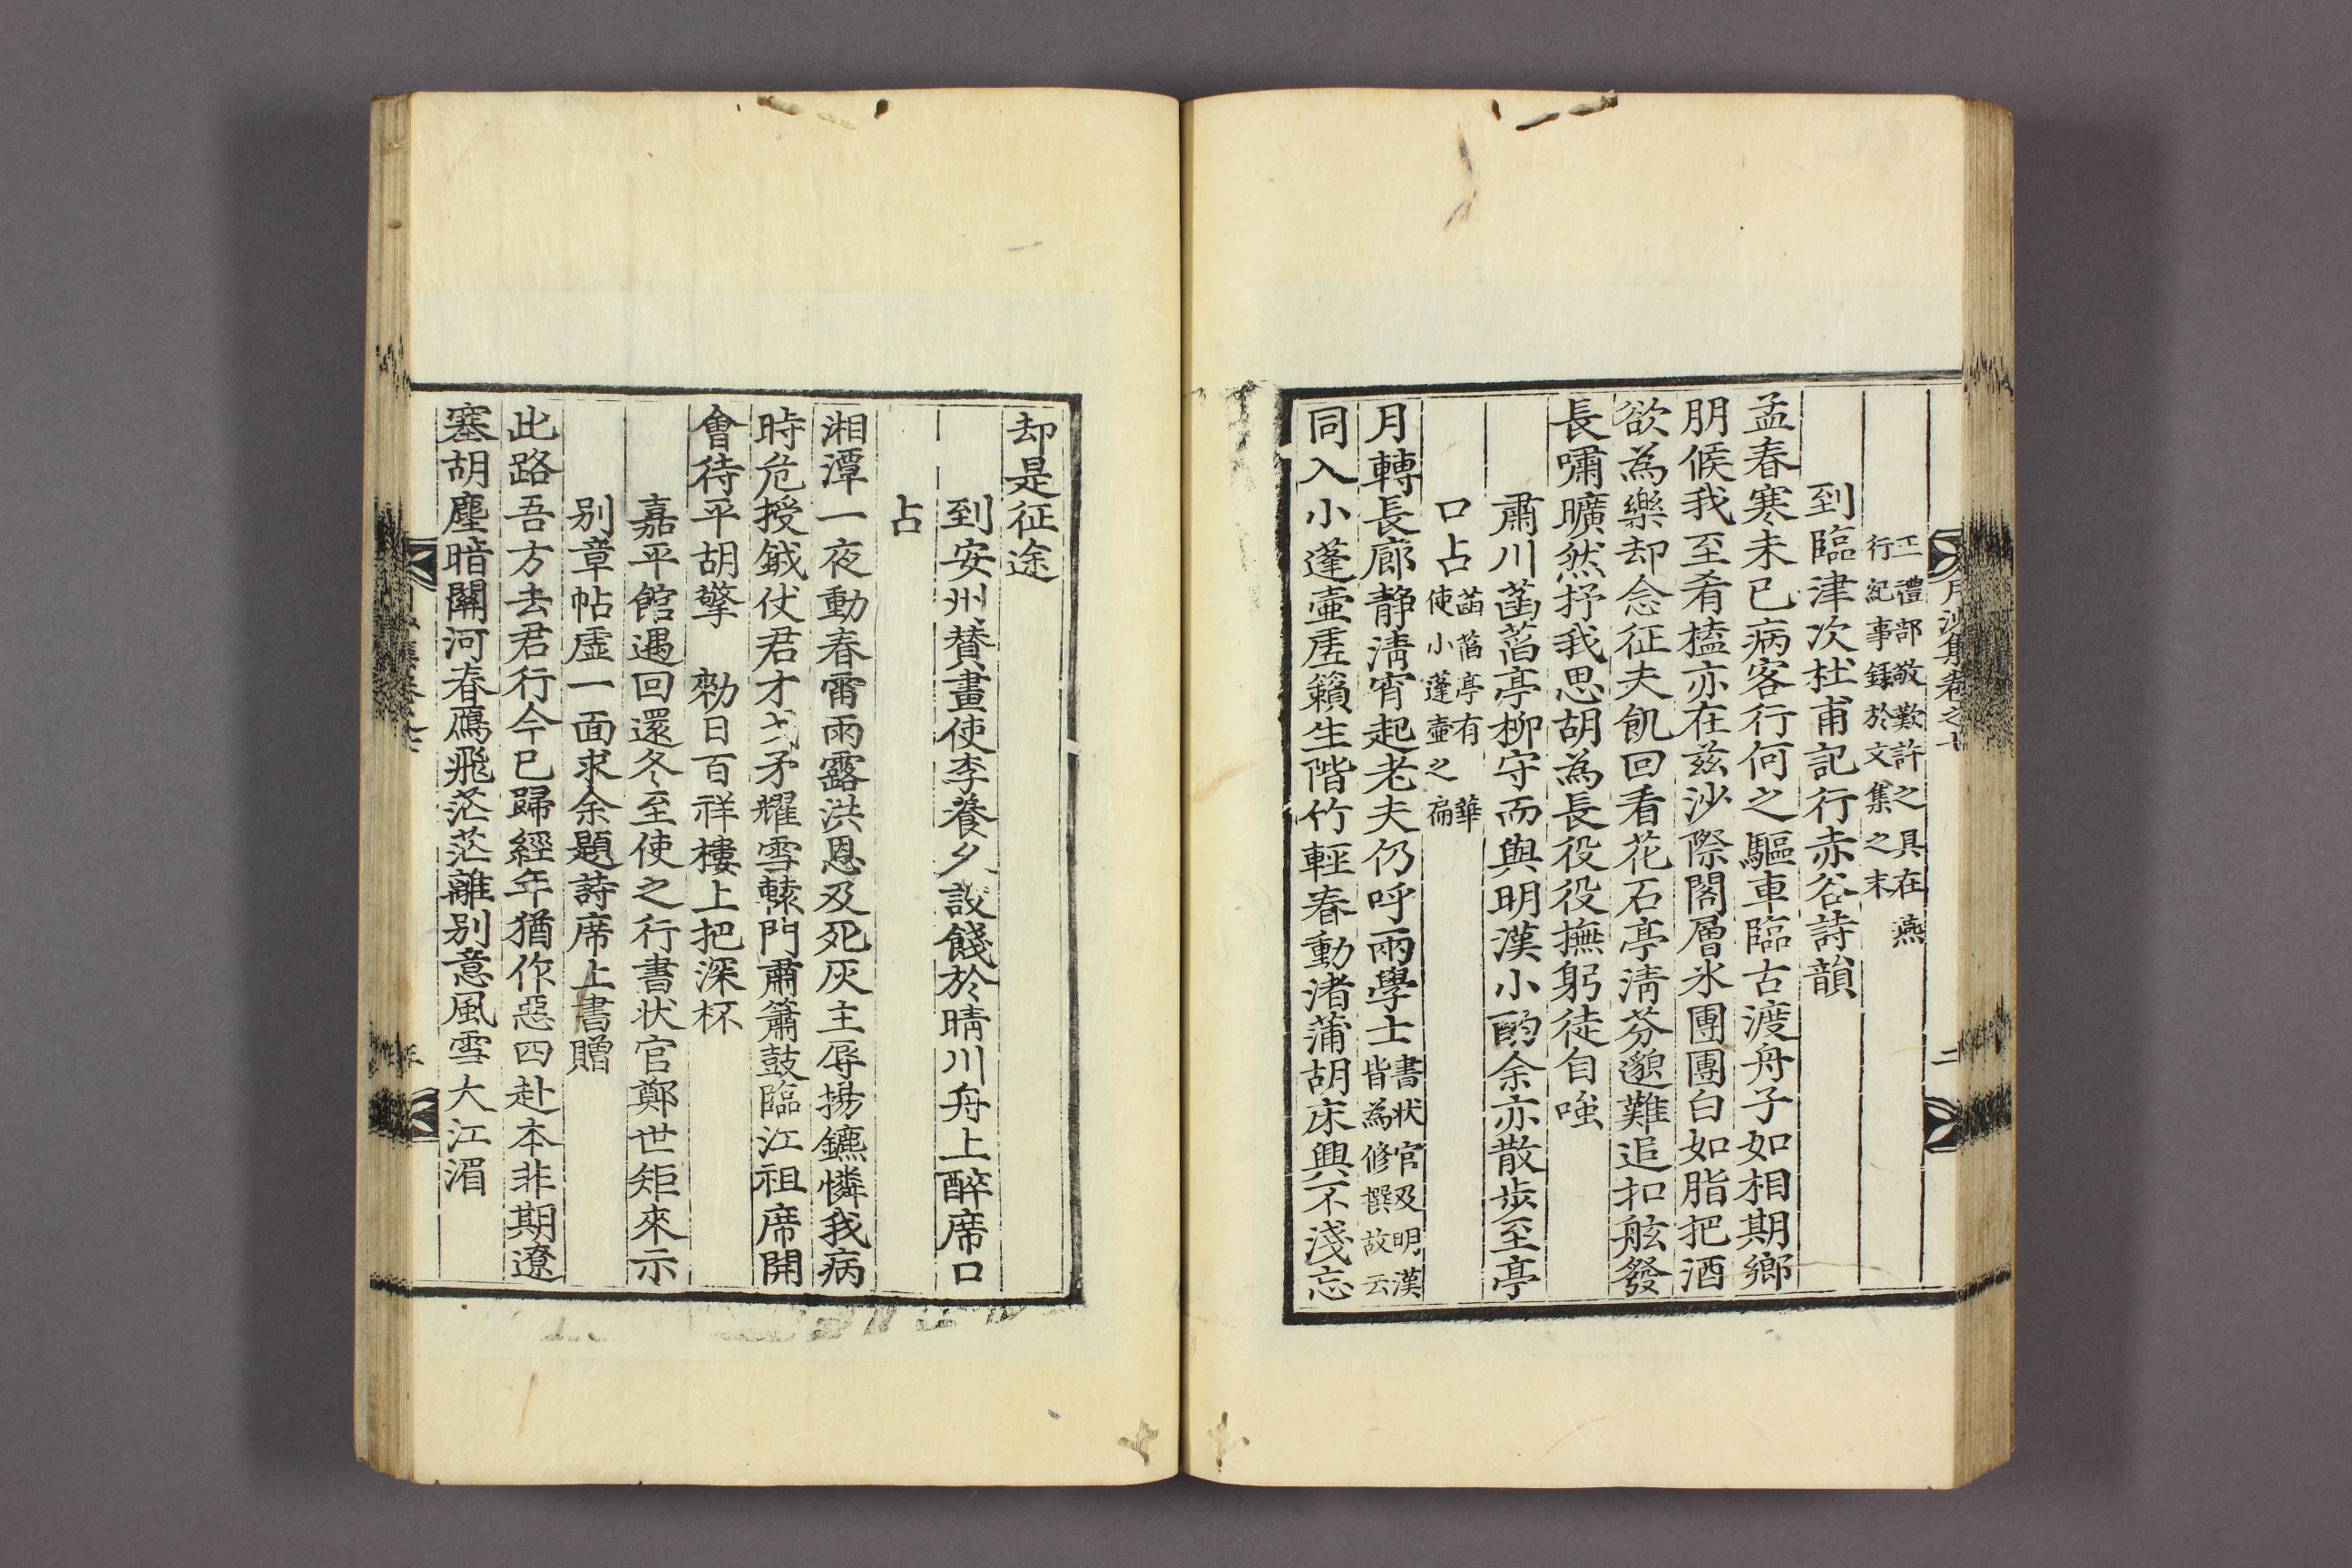 月沙集卷之十
二
工禮部敬歎許之具在燕
行紀事錄於文集之末
到臨津次杜甫記行赤谷詩韻
孟春寒未已病客行何之驅車臨古渡舟子如相期鄉
朋候我至肴榼亦在玆沙際閣層氷團團白如脂把酒
欲為樂却念征夫飢回看花石亭淸芬邈難追扣舷發
長嘯曠然抒我思胡為長役役撫躬徒自嗤
肅川菡萏亭柳守而與明漢小酌余亦散步至亭
口占
菡萏亭有華
使小蓬壺之扁
月轉長廊静淸宵起老夫仍呼兩學士
書状官及明漢
皆為修撰故云
同入小蓬壺虛籟生階竹輕春動渚蒲胡床興不淺忘
却是征途
到安州贊畫使李養久設餞於晴川舟上醉席口
占
湘潭一夜動春雷雨露洪恩及死灰主辱揚鑣憐我病
時危授鉞仗君才弋矛耀雪轅門肅簫鼓臨江祖席開
會待平胡擎 勑日百祥樓上把深杯
嘉平館遇回還冬至使之行書状官鄭世矩來示
别章帖虛一面求余題詩席上書贈
此路吾方去君行今已歸經年猶作惡四赴本非期遼
塞胡塵暗關河春鴈飛茫茫離别意風雪大江湄